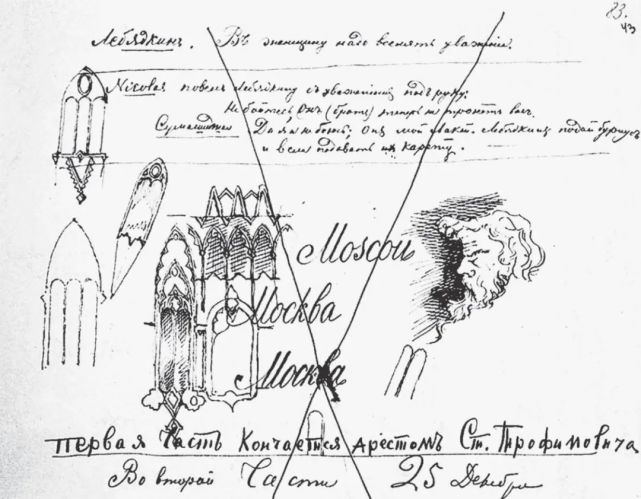 83.
43
Лебядкинъ. Въ женщину надо вселять уваженіе.
Nicolas повелъ Лебядкину съ уваженіемъ подъ руку.
Не бойтесь, Онъ (братъ) теперь не тронетъ васъ.
Да я и не боюсь, Онъ мой лакей. Лебядкинъ подай бурнусъ
и вели подавать карету.
Moscou
Москва
Москва
Первая Часть Кончается арестомъ Ст. Трофимовича
Во второй Части 25 Декабря